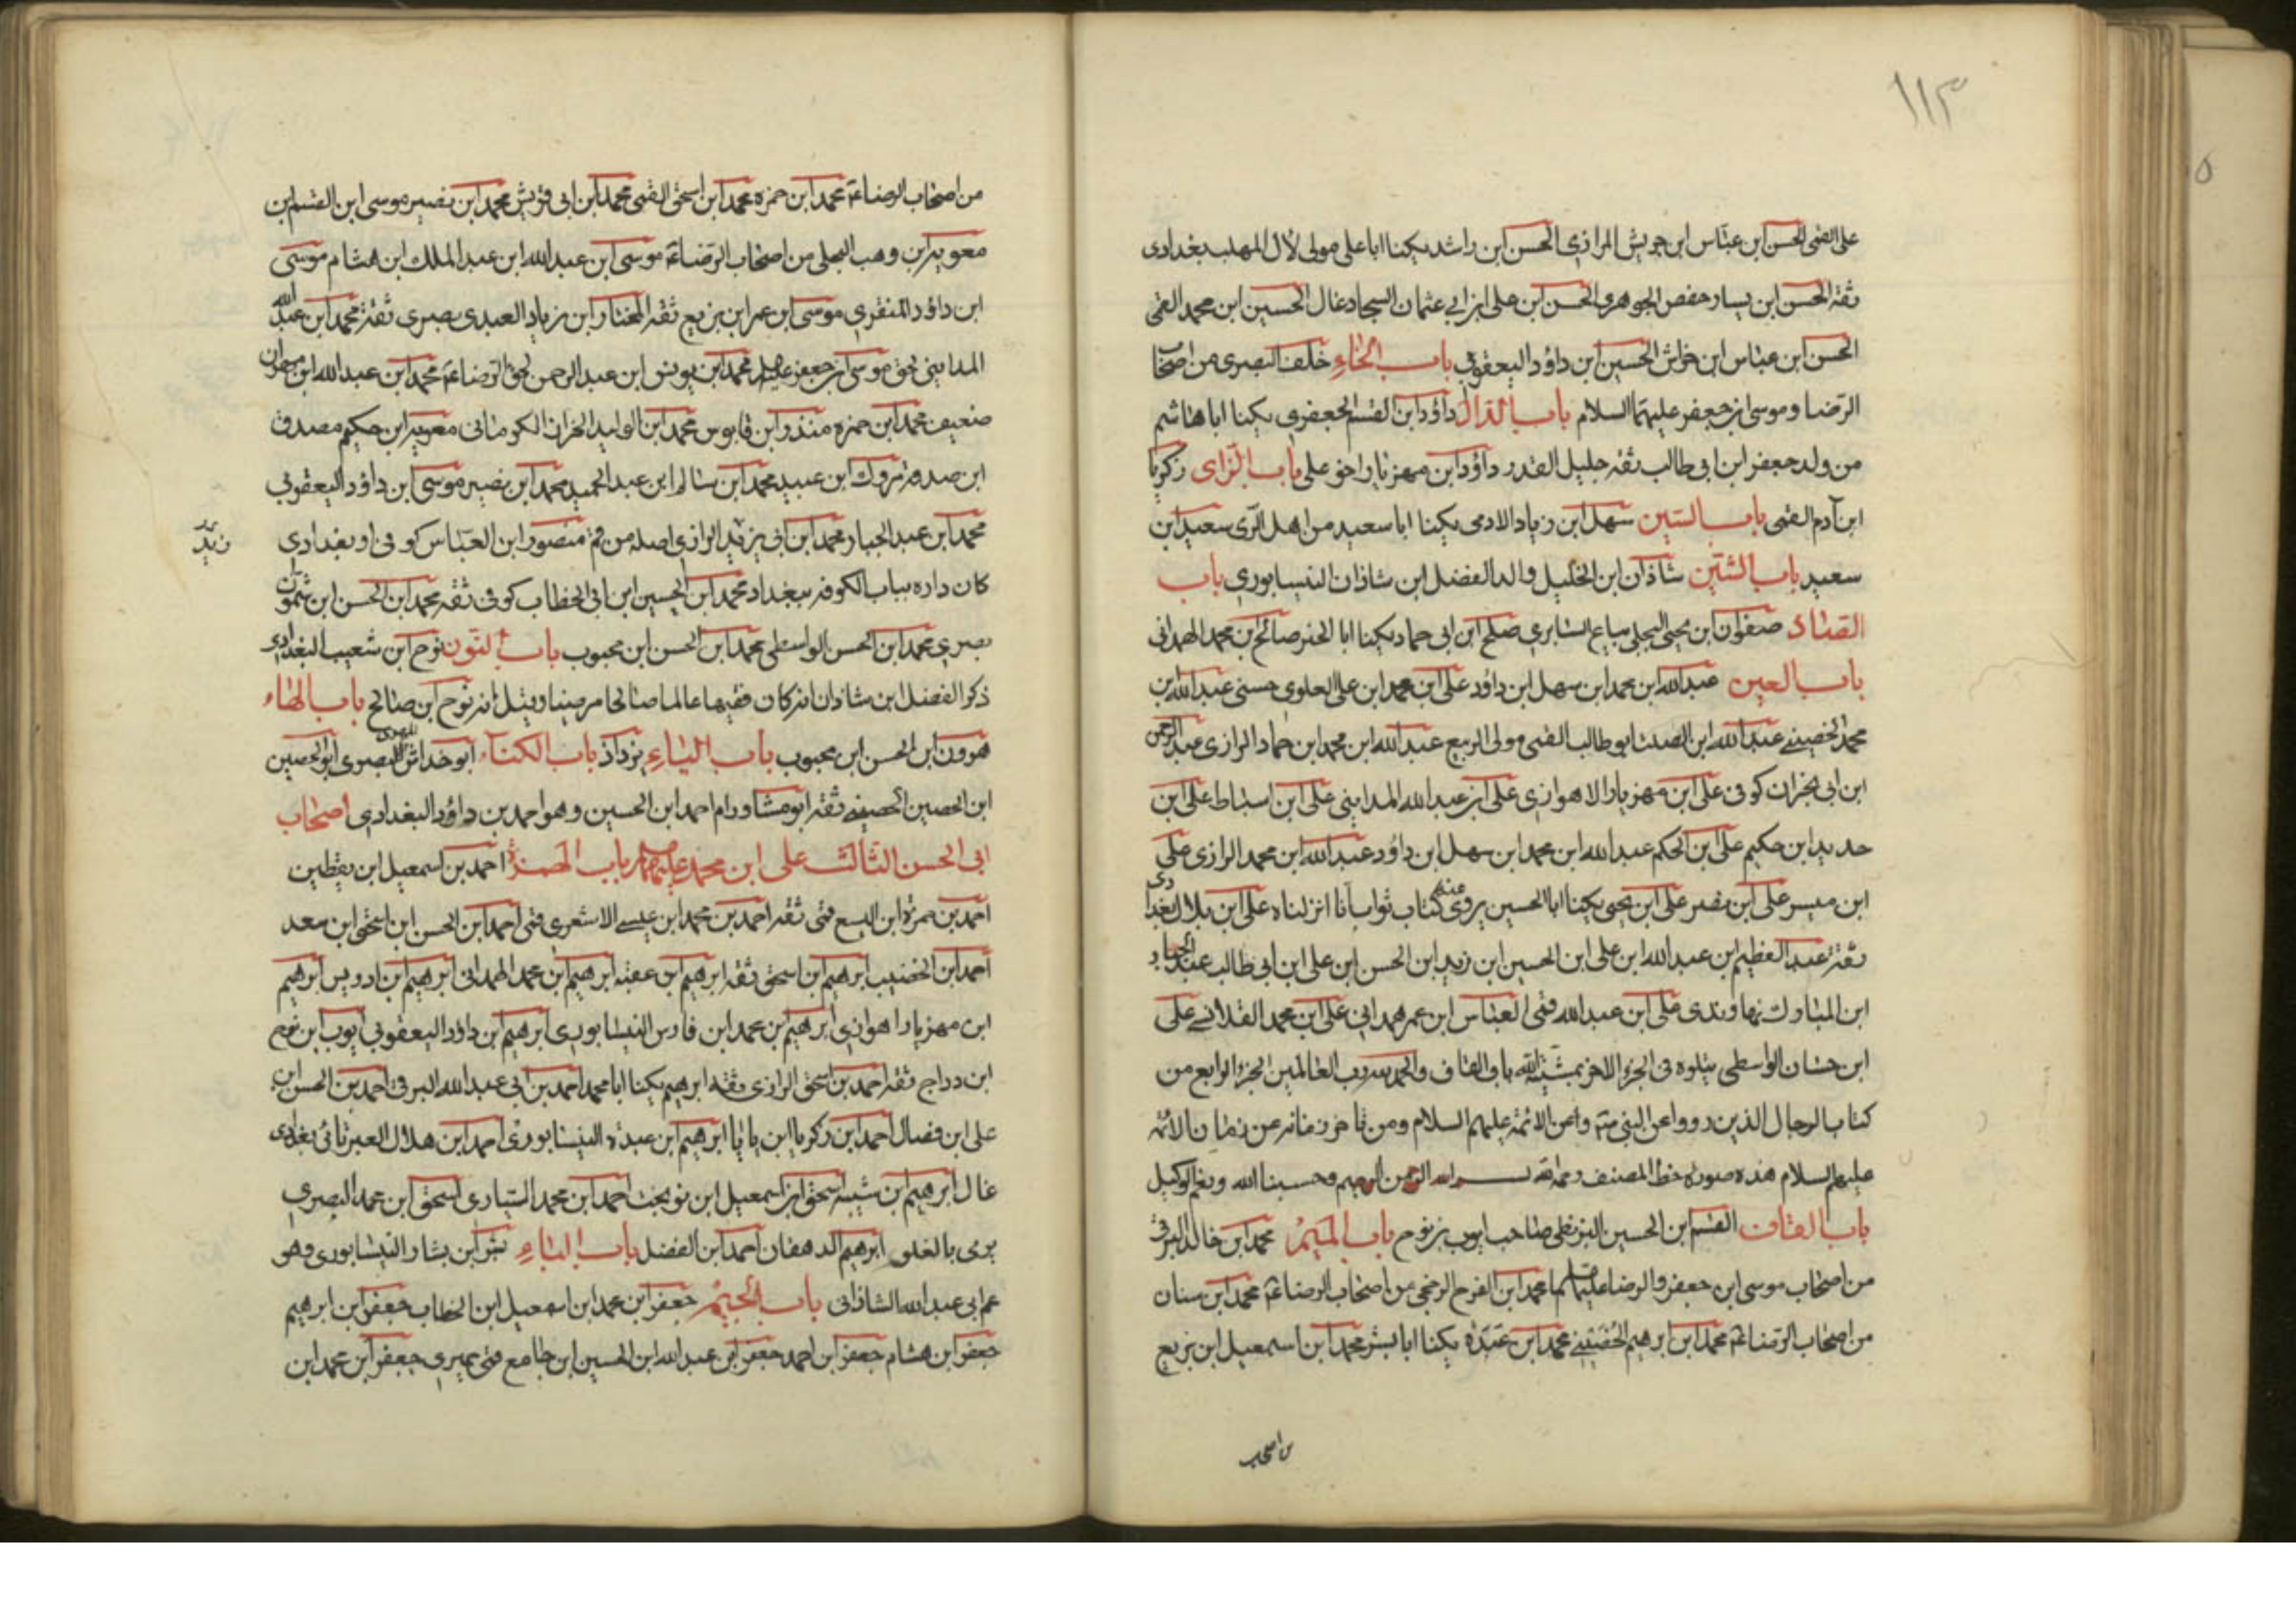 ١١٣
على القمى الحسن ابن عباس ابن حريش الرازى الحسن ابن راشد يكنا ابا على مولى لآل المهلب بغدادى
ثقة الحسن ابن بسار حفص الجوهرى الحسن ابن على ابن ابي عثمان السجاد غال الحسين ابن محمد القمى
الحسن ابن عباس ابن خراش الحسين ابن داؤد اليعقوبى باب الخاء خلف البصرى من اصحاب
الرضا وموسى ابن جعفر عليهما السلام باب الدال داؤد ابن القسم الجعفرى يكنا ابا هاشم
من ولد جعفر ابن ابى طالب ثقه جليل القدر داؤد ابن مهزيار اخو على باب الزاى زكريا
ابن آدم القمى باب السين سهل ابن زياد الادمى يكنا ابا سعيد من اهل الرى سعيد ابن
سعيد باب الشين شاذان ابن الخليل والد الفضل ابن شاذان النيسابورى باب
الصاد صفوان ابن يحيى البجلى بياع السابرى صلح ابن ابى حماد يكنا ابا الخير صالح ابن محمد الهمدانى
باب العين عبد الله ابن محمد ابن سهل ابن داؤد على ابن محمد ابن على العلوى حسنى عبد الله بن
محمد الحضينى عبد الله ابن الصلت ابو طالب القمى مولى الربيع عبد الله ابن محمد ابن حماد الرازى عبد الرحمن
ابن ابى نجران كوفى على ابن مهزيار الاهوازى على ابن عبد الله المداينى على ابن اسباط على ابن
حديد ابن حكيم على ابن الحكم عبد الله ابن محمد ابن سهل ابن داؤد عبد الله ابن محمد الرازى على
ابن ميسر على ابن نصر على ابن يحيى يكنا ابا الحسين يروى عنه كتاب ثواب انا انزلناه على ابن بلال بغدادى
ثقة عبد العظيم ابن عبد الله ابن على ابن الحسين ابن زيد ابن الحسن ابن على ابن ابى طالب عبد الجبار
ابن المبارك نهاوندى على ابن عبد الله قمى العباس ابن عمر همدانى على ابن محمد القلانسى على
ابن حسان الواسطى يتلوه فى الجزء الاخر بمشية الله باب القاف والحمد لله رب العالمين الجزء الرابع من
كتاب الرجال الذين رووا عن النبى وعن الائمة عليهم السلام ومن تاخر زمانه عن زمان الائمة
عليهم السلام هذه صورة خط المصنف رحمه الله بسم الله الرحمن الرحيم وحسبنا الله ونعم الوكيل
باب القاف القسم ابن الحسين البزنطى صاحب ايوب بن نوح باب الميم محمد ابن خالد البرقى
من اصحاب موسى ابن جعفر والرضا عليهما محمد ابن الفرج الرخجى من اصحاب الرضا ع محمد ابن سنان
من اصحاب الرضا ع محمد ابن ابرهيم الحضينى محمد ابن عبدة يكنا ابا بشر محمد ابن اسمعيل ابن بزيع
من اصحاب
من اصحاب الرضا ع محمد ابن حمزه محمد ابن اسحق القمى محمد ابن ابى قريش محمد ابن نصير موسى ابن القسم ابن
معوية ابن وهب البجلى من اصحاب الرضا ع موسى ابن عبد الله ابن عبد الملك ابن هشام موسى
ابن داؤد المنقرى موسى ابن عمر ابن بزيع ثقه المختار ابن زياد العبدى بصرى ثقة محمد ابن عبد الله
المداينى لحق موسى ابن جعفر محمد ابن يونس ابن عبد الرحمن لحق الرضا ع محمد ابن عبد الله ابن مهران
ضعيف محمد ابن حمزه منذر ابن قابوس محمد ابن الوليد الخزاز الكرمانى معوية ابن حكيم مصدق
ابن صدقة مروك ابن عبيد محمد ابن سالم ابن عبد الحميد محمد ابن نصير موسى ابن داؤد اليعقوبى
محمد ابن عبد الجبار محمد ابن ابى يزيد الرازى اصله من قم منصور ابن العباس كوفى او بغدادى
زيد
كان داره بباب الكوفة ببغداد محمد ابن الحسين ابن ابى الخطاب كوفى ثقه محمد ابن الحسن ابن شمون
بصرى محمد ابن الحسن الواسطى محمد ابن الحسن ابن محبوب باب النون نوح ابن شعيب البغدادى
ذكر الفضل ابن شاذان انه كان فقيها عالما صالحا مرضيا وقيل انه نوح ابن صالح باب الهاء
هرون ابن الحسن ابن محبوب باب الياء يزداد باب الكناء ابو خداش المهرى البصرى ابو الحصين
ابن الحصين الحضينى ثقه ابو مشاور ام احمد ابن الحسين وهو احمد بن داؤد البغدادى اصحاب
ابى الحسن الثالث على ابن محمد عليهما باب الهمزة احمد بن اسمعيل ابن يقطين
احمد بن حمزة ابن اليسع قمى ثقه احمد بن محمد ابن عيسى الاشعرى قمى احمد ابن الحسن ابن اسحق ابن سعد
احمد ابن الخضيب ابرهيم ابن اسحق ثقه ابرهيم ابن عقبه ابرهيم ابن محمد الهمدانى ابرهيم ابن ادريس ابرهيم
ابن مهزيار اهوازى ابرهيم ابن محمد ابن فارس النيسابورى ابرهيم ابن داؤد اليعقوبى ايوب ابن نوح
ابن دراج ثقه احمد بن اسحق الرازى ثقه ابرهيم يكنا ابا محمد احمد بن ابى عبد الله البرقى احمد بن الحسن ابن
على بن فضال احمد ابن زكريا ابن بابا ابرهيم ابن عبده النيسابورى احمد ابن هلال العبرتائى بغدادى
غال ابرهيم ابن شيبه اسحق ابن اسمعيل ابن نوبخت احمد ابن محمد السيارى اسحق ابن محمد البصرى
يرمى بالغلو ابرهيم الدهقان احمد ابن الفضل باب الباء بشر ابن بشار النيشابورى وهو
عم ابى عبد الله الشاذانى باب الجيم جعفر ابن محمد ابن اسمعيل ابن الخطاب جعفر ابن ابرهيم
جعفر ابن هشام جعفر ابن احمد جعفر ابن عبد الله ابن الحسين ابن جامع قمى حميرى جعفر ابن محمد ابن